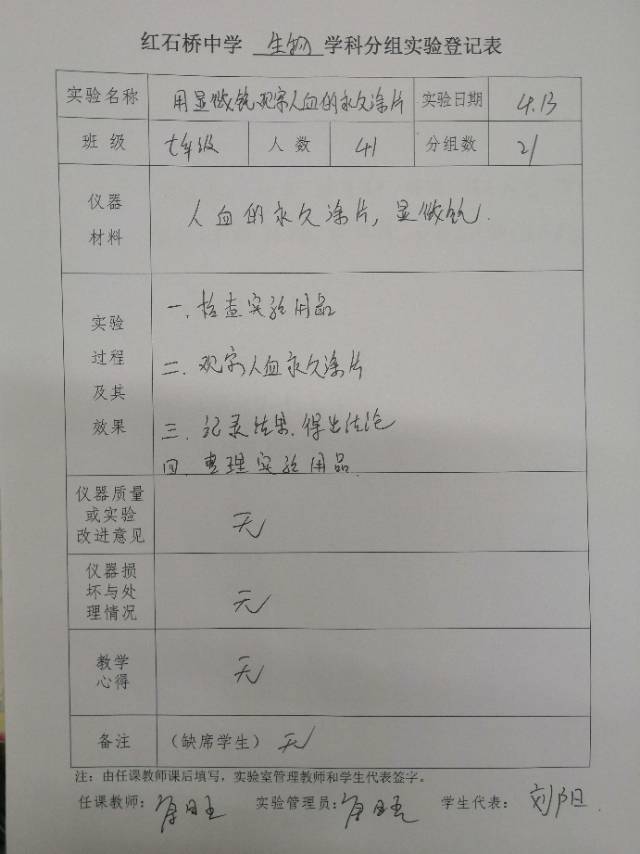 红石桥中学 生物 学科分组实验登记表
实验名称 用显微镜观察人血的永久涂片 实验日期 4.13
班级 七年级 人数 41 分组数 21
仪器
材料
人血的永久涂片,显微镜.
实验
过程
及其
效果
一.检查实验用品
二.观察人血永久涂片
三.记录结果.得出结论
四.整理实验用品.
仪器质量
或实验
改进意见
无
仪器损
坏与处
理情况
无
教学
心得
无
备注 (缺席学生) 无
注:由任课教师课后填写,实验室管理教师和学生代表签字。
任课教师: 实验管理员: 学生代表: 刘阳